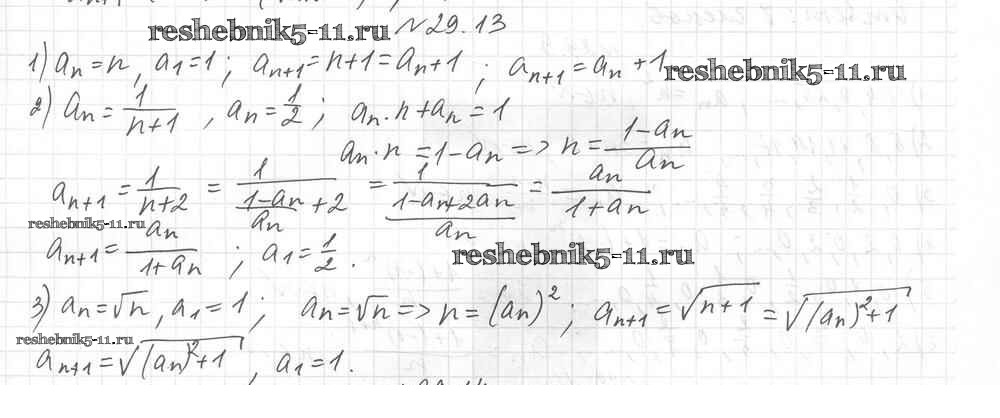 reshebnik5-11.ru №29.13
1) aₙ = n, a₁ = 1; aₙ₊₁ = n+1 = aₙ+1; aₙ₊₁ = aₙ + 1 reshebnik5-11.ru
2) aₙ = 1/(n+1), aₙ = 1/2; aₙ·n + aₙ = 1
aₙ·n = 1-aₙ => n = (1-aₙ)/aₙ
aₙ₊₁ = 1/(n+2) = 1/((1-aₙ)/aₙ + 2) = 1/((1-aₙ+2aₙ)/aₙ) = aₙ/(1+aₙ)
reshebnik5-11.ru
aₙ₊₁ = aₙ/(1+aₙ); a₁ = 1/2. reshebnik5-11.ru
3) aₙ = √n, a₁ = 1; aₙ = √n => n = (aₙ)²; aₙ₊₁ = √(n+1) = √((aₙ)²+1)
reshebnik5-11.ru
aₙ₊₁ = √((aₙ)²+1), a₁ = 1.